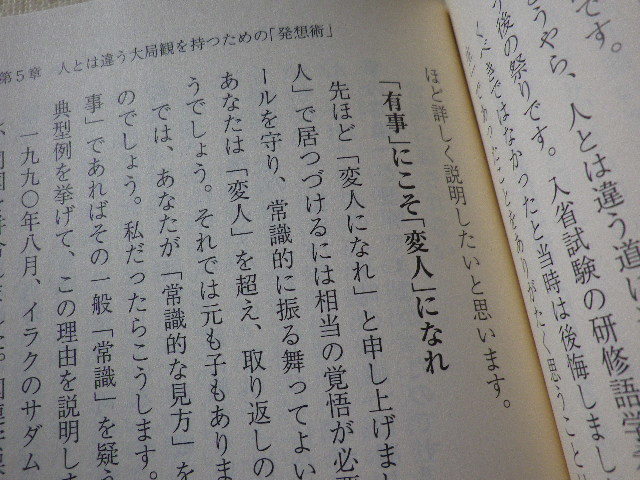 です。
どうやら、人とは違う道に
午後の祭りです。入省試験の研修語学
くべきではなかったと当時は後悔しまし
ほど詳しく説明したいと思います。
「有事」にこそ「変人」になれ
先ほど「変人になれ」と申し上げま
人」で居つづけるには相当の覚悟が必要
ールを守り、常識的に振る舞ってよい
あなたは「変人」を超え、取り返しの
うでしょう。それでは元も子もありま
では、あなたが「常識的な見方」を
のでしょう。私だったらこうします。
事」であればその一般「常識」を疑
典型例を挙げて、この理由を説明しま
一九九〇年八月、イラクのサダム
第5章 人とは違う大局観を持つための「発想術」